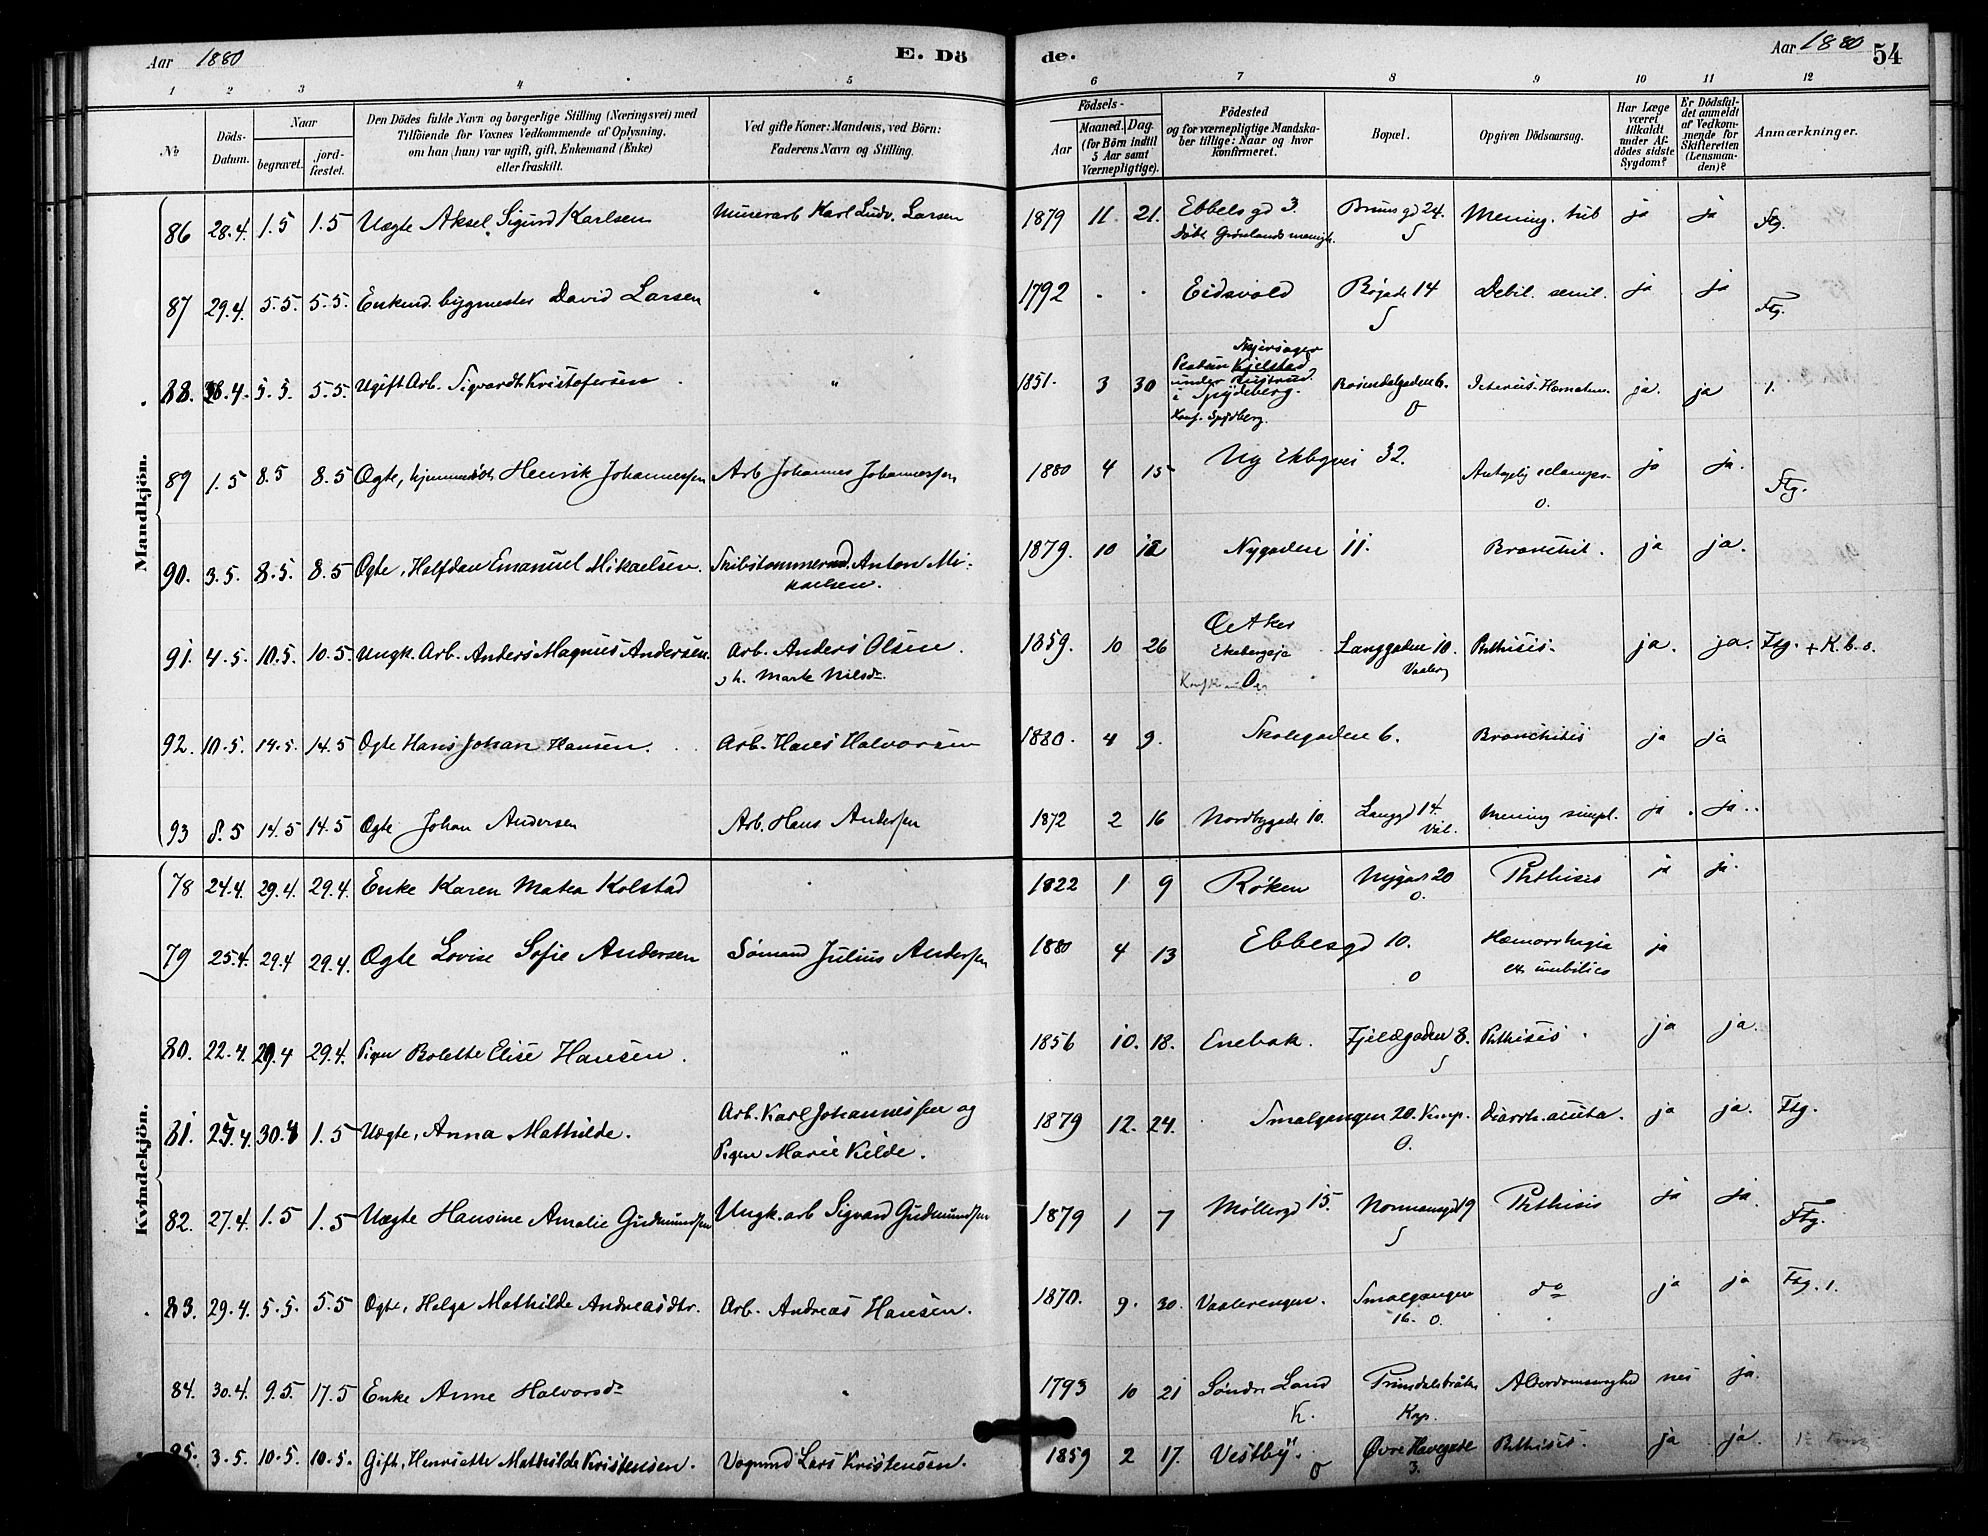 Aar 1880
E. Dö
de.
Aar 1880
54
1 2 3 4 5
6 7 8 9 10 11 12
No
Döds-Datum.
Naar
begravet.
jord-fæstet.
Den Dödes fulde Navn og borgerlige Stilling (Næringsvei) med
Tilföiende for Voxnes Vedkommende af Oplysning,
om han (hun) var ugift, gift, Enkemand (Enke)
eller fraskilt.
Ved gifte Koner: Mandens, ved Börn:
Faderens Navn og Stilling.
Födsels-
Aar
Maaned. Dag.
(for Börn indtil
5 Aar samt
Værnepligtige).
Födested
og for værnepligtige Mandska-
ber tillige: Naar og hvor
konfirmeret.
Bopæl.
Opgiven Dödsaarsag.
Har Læge
været
tilkaldt
under Af-
dödes sidste
Sygdom?
Er Dödsfal-
det anmeldt
af Vedkom-
mende for
Skifteretten
(Lensman-
den)?
Anmærkninger.
Mandkjön.
86 28.4. 1.5 1.5 Uægte Aksel Sigurd Karlsen Murerarb Karl Ludv. Larsen 1879 11. 21. Ebbelsgd 3. Brunsgd 24. Mening. tub ja ja Ftg.
Döbt Grönlands menigh. S
87 29.4. 5.5. 5.5. Enkemd. bygmester David Larsen " 1792 . . Eidsvold Böjade 14 Debil. senil. ja ja Ftg.
S
88. 28.4. 5.5. 5.5. Ugift Arb. Sigvardt Kristofersen " 1851. 3 30 Kjelstad under i Spydeberg. Rosendalgaden 6. Icterus. ja. ja 1.
Konf. Spydberg. O
89 1.5 8.5 8.5 Ægte, hjemmedöbt Henrik Johannessen Arb Johannes Johannessen 1880 4 15 Ny Ekbgvei 32. Antagelig eclamps. ja ja. Ftg.
O.
90. 3.5. 8.5. 8.5 Ægte, Halfdan Emanuel Mikaelsen. Skibstømmermd. Anton Mi-
kaelsen. 1879. 10 18 Nygaden 11. Bronchit. ja ja.
91. 4.5. 10.5. 10.5. Ungk. Arb. Anders Magnus Andersen. Arb. Anders Olsen. 1859. 10 26 Ø Aker Langgaden 10. Phthisis. ja. ja. Ftg. + K.b.s.
Marte Nilsdr. Vaalerg
92. 10.5. 14.5. 14.5 Ægte Hans Johan Hansen. Arb. Hans Halvorsen 1880. 4 9. Skolegaden 6. Bronchitis ja ja
93 8.5 14.5 14.5 Ægte Johan Andersen Arb. Hans Andersen 1872 2 16 Nordbygade 10. Langgd 14. Mening simpl. ja ja.
Vål.
Kvindekjön.
78 24.4 29.4. 29.4. Enke Karen Matea Kolstad 1822 1 9 Røken Nygad 20 Phthisis ja ja.
O.
79 25.4. 29.4 29.4. Ægte Lovise Sofie Andersen Sømand Julius Andersen 1880 4 13 Ebbesgd 10. Hæmorrhagia ja
O ex umbilico
80. 22.4. 29.4 29.4. Pigen Bolette Elise Hansen. " 1856 10. 18. Enebak. Fjeldgaden 8. Phthisis. ja ja.
S
81. 25.4. 30.4 1.5 Uægte, Anna Mathilde. Arb. Karl Johannessen og
Pigen Marie Kilde. 1879 12. 24. Smalgangen 20. Kamp. Diarrh. acuta. ja ja. Ftg.
O.
82. 27.4. 1.5 1.5 Uægte Hansine Amalie Gudmundsen Ungk. arb Sigvard Gudmundsen 1879 1 7 Møllergd 15. Normansgd 9 Phthisis ja ja Ftg.
S
83. 29.4. 5.5. 5.5 Ægte, Helga Mathilde Andreasdtr. Arb. Andreas Hansen. 1870. 9. 30. Vaalerengen. Smalgangen do ja ja Ftg. 1.
16. O.
84. 30.4. 9.5. 17.5 Enke Anne Halvorsdr " 1793 10 21 Søndre Land Prinsdalsbråten Alderdomssvaghed nei ja.
K. Kop.
85. 3.5. 10.5. 10.5. Gift, Henriette Mathilde Kristensen. Vognmd Lars Kristensen. 1859 2 17. Vestby. Øvre Havegade Phthisis. ja ja.
O 3.